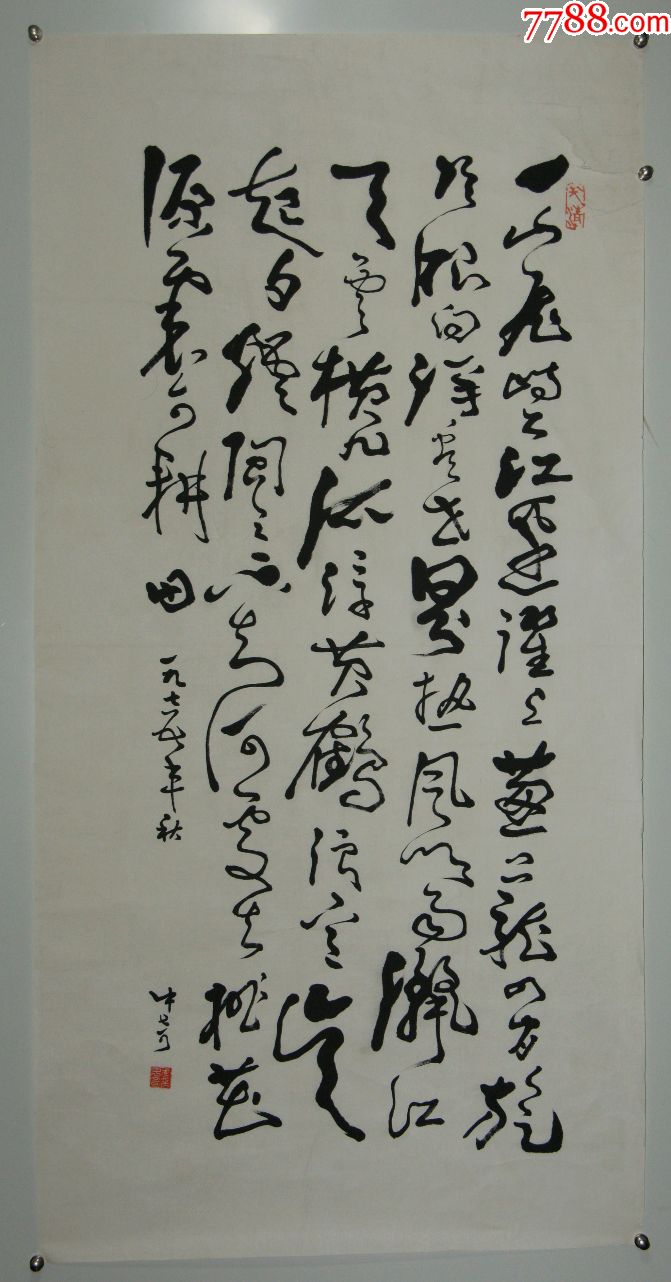 7788.com
一山飛峙大江邊躍上葱蘢四百旋
冷眼向洋看世界热風吹雨灑江
天雲横九派浮黄鶴浪下三吴
起白煙陶令不知何處去桃花
源裏可耕田
一九七五年秋